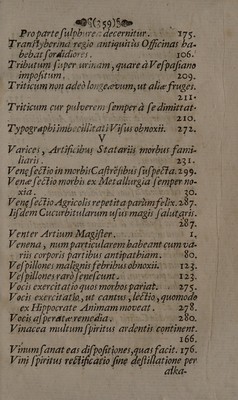 (59)
Pro parte sulphure: decernitur. 175.
Transtyberina regio antiquitus Officinas ha-
bebat sordidiores. 106.
Tributum super urinam, quare à Vespasiano
impositum. 209.
Triticum non adeò longeævum, ut aliæ fruges.
211.
Triticum cur pulverem semper à se dimittat.
210.
Typographi imbecillitati Visus obnoxii. 272.
V
Varices, Artificibus Statariis morbus fami-
liaris. 231.
Venæ sectio in morbis Castrēsibus suspecta. 299.
Venæ sectio morbis ex Metallurgia semper no-
xia. 30.
Venæ sectio Agricolis repetita parùm felix. 287.
Iisdem Cucurbitularum usus magis salutaris.
287.
Venter Artium Magister. 1.
Venena, num particularem habeant cum va-
riis corporis partibus antipathiam. 80.
Vespillones malignis febribus obnoxii. 123.
Vespillones rarò senescunt. 123.
Vocis exercitatio quos morbos pariat. 275.
Vocis exercitatio, ut cantus, lectio, quomodo
ex Hippocrate Animam moveat. 278.
Vocis asperatæ remedia. 280.
Vinacea multum spiritus ardentis continent.
166.
Vinum sanat eas dispositiones, quas facit. 176.
Vini spiritus rectificatio sine destillatione per
alka-